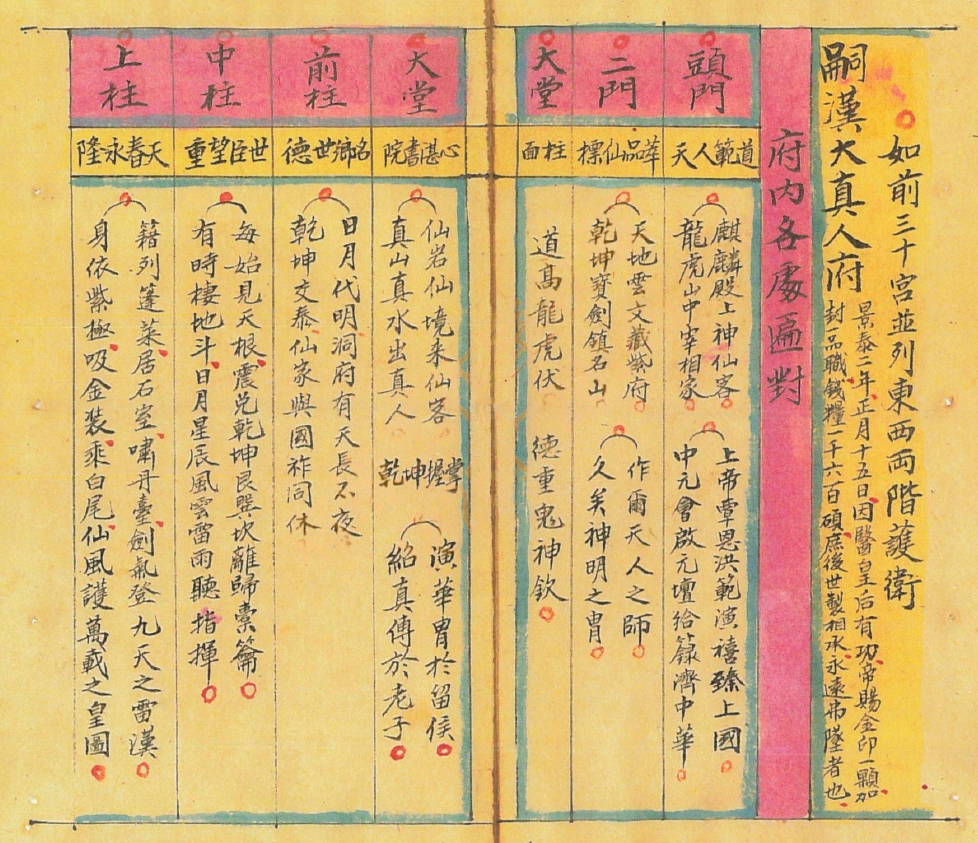 如前三十宮並列東西両階護衛
嗣漢大真人府
景泰二年正月十五日因醫皇后有功帝賜金印一顆加
封一品職錢糧一千六百碩庶後世製相承永遠弗墜者也
府内各處匾對
頭門
道範人天
麒麟殿上神仙客
龍虎山中宰相家
上帝覃恩洪範演禧臻上國
中元會啟元壇給籙濟中華
二門
華品仙標
天地雲文藏紫府
乾坤寶劍鎮名山
作爾天人之師
久矣神明之胄
大堂
柱面
道高龍虎伏
德重鬼神欽
大堂
心湛書院
仙岩仙境来仙客
真山真水出真人
掌握坤乾
演華胄於留侯
紹真傳於老子
前柱
名鄉世德
日月代明洞府有天長不夜
乾坤交泰仙家與國祚同休
中柱
世臣望重
每始見天根震兌乾坤艮巽坎離歸橐籥
有時棲地斗日月星辰風雲雷雨聽指揮
上柱
天春永隆
籍列篷莱居石室嘯丹臺劍氣登九天之雷漢
身依紫極吸金装乘白尾仙風護萬載之皇圖